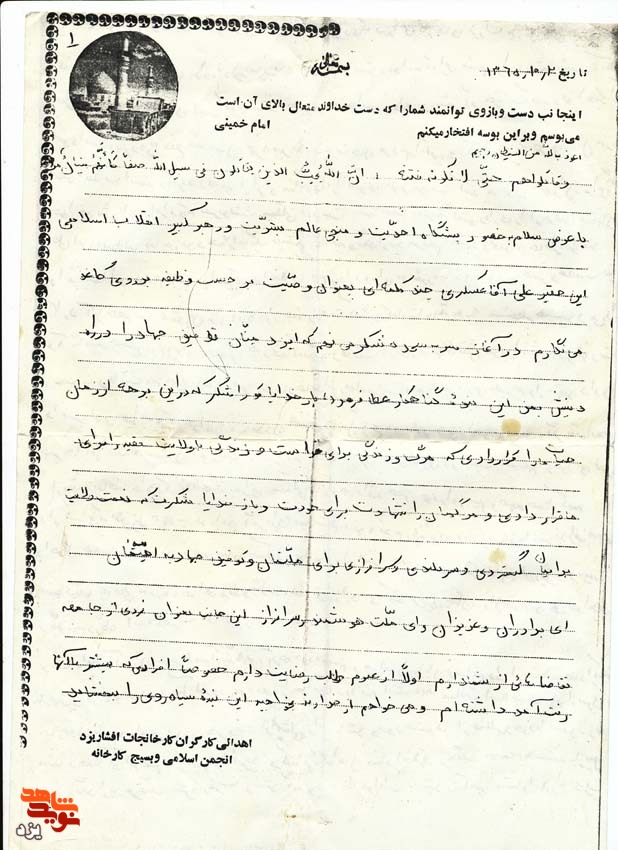 ۱
بسمه تعالی
تاریخ ۱۳۶۵/۲/۲
اینجانب دست و بازوی توانمند شما را که دست خداوند متعال بالای آن است
می‌بوسم و براین بوسه افتخار میکنم امام خمینی
اعوذ بالله من الشیطان الرجیم
و قاتلوهم حتی لا تکون فتنة ، ان الله یحب الذین یقاتلون فی سبیل الله صفا کانهم بنیان
با عرض سلام به حضور پیشگاه احدیت و منجی عالم بشریت و رهبر کبیر انقلاب اسلامی
این حقیر علی آقا عسکری چند کلمه‌ای بعنوان وصیت بر حسب وظیفه بر روی کاغذ
می نگارم در آغاز سر به سجده شکر می نهم که ایزد منان توفیق جهاد را در راه
دینش به من این بنده گناهکار عطا فرمود بار خدایا تو را شکر که در این برهه از زمان
حیات ما را قرار دادی که مرگ و زندگی برای خداست و زندگی با ولایت فقیه را برای
ما قرار دادی و مرگمان را شهادت برای خودت و باز خدایا شکرت که نعمت ولایت
برایمان گستردی و سربلندی و سرافرازی برای ملتمان و توفیق جهاد به همه‌مان
ای برادران و عزیزان و ای ملت هوشمند و سرافراز این جانب بعنوان فردی از جامعه
تقاضائی از شما دارم اولاً از عموم طلب رضایت دارم خصوصاً افرادی که بیشتر با آنها
رفت و آمد داشته‌ام و می خواهم از خداوند بخواهید این بندهٔ سیاه روی را ببخشاید
اهدائی کارگران کارخانجات افشار یزد
انجمن اسلامی و بسیج کارخانه
نوید شاهد
یزد